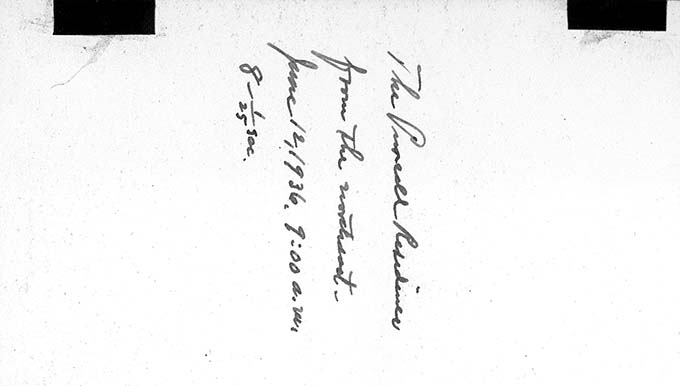 The Purcell Residence
from the northeast.
June 12, 1936. 9:00 a.m.
8 - 1/25 sec.